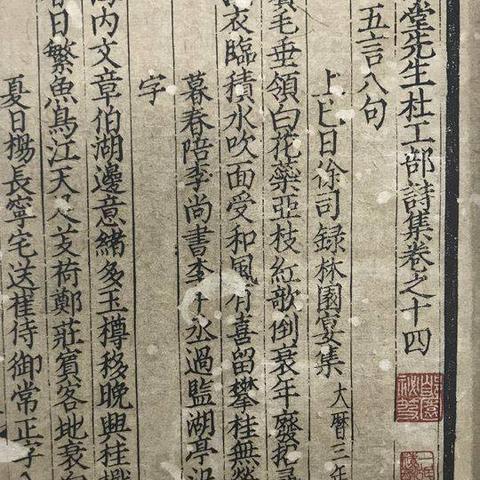 堂先生杜工部詩集卷之十四
五言八句
上巳日徐司録林園宴集 大曆三年
毛垂領白花蘂亞枝紅欹倒衰年廢招尋
衣臨積水吹面受和風有喜留攀桂無勞
暮春陪李尚書李丞過監湖亭
字
內文章伯湖邊意緒多玉樽移晚興桂楫
日繁魚鳥江天芰荷鄭莊賓客地衰白
夏日楊長寧宅送崔侍御常正字入